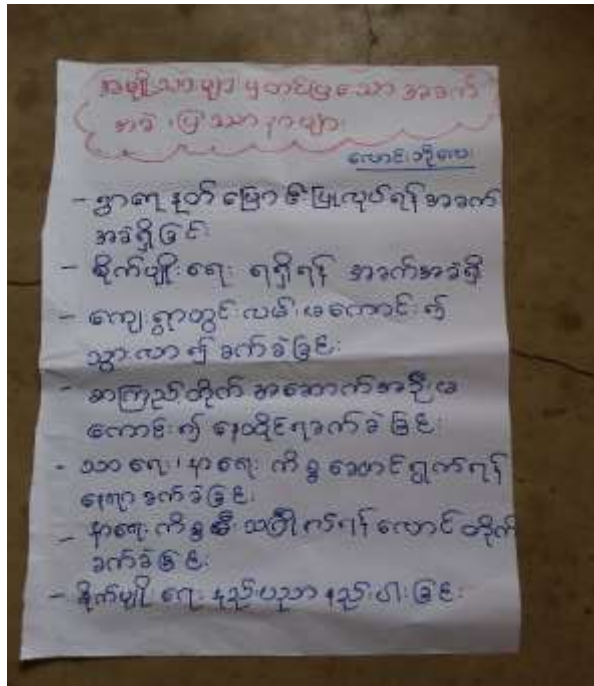 အမျိုးသားများ မှတင်ပြသော အခက်
အခဲ ပြဿနာများ
လောင်းဘိုလေး
- ရွာရေ နုတ် မြောင်းပြုလုပ်ရန် အခက်
အခဲရှိခြင်း
- စိုက်ပျိုးရေး ရရှိရန် အခက်အခဲရှိ
- ကျေးရွာတွင်း လမ်းမကောင်း၍
သွားလာ၍ ခက်ခဲခြင်း
- စာကြည့်တိုက် အဆောက်အဦးမ
ကောင်း၍ နေထိုင်ရခက်ခဲခြင်း
- သာရေး၊ နာရေး ကိစ္စ ဆောင်ရွက်ရန်
နေရာ ခက်ခဲခြင်း
- နာရေးကိစ္စ သင်္ဂြိုဟ်ရန် လောင်တိုက်
ခက်ခဲခြင်း
- စိုက်ပျိုးရေး နည်းပညာ နည်းပါးခြင်း